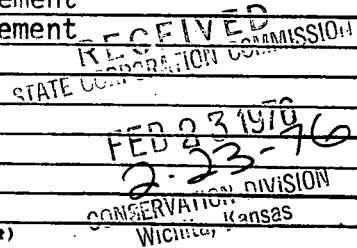 ement
ement
RECEIVED
STATE CORPORATION COMMISSION
FEB 23 1976
2-23-76
CONSERVATION DIVISION
Wichita, Kansas